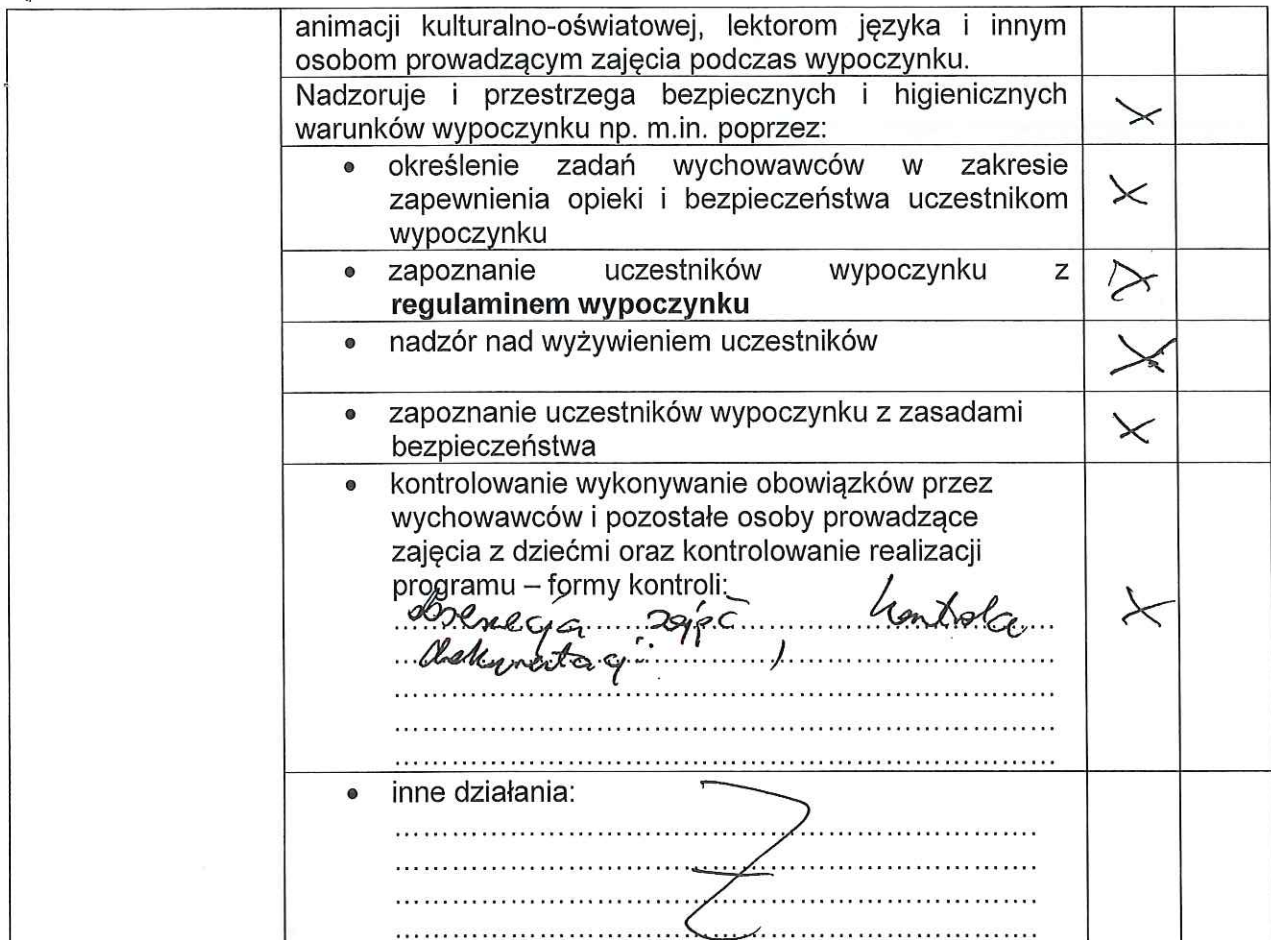 animacji kulturalno-oświatowej, lektorom języka i innym
osobom prowadzącym zajęcia podczas wypoczynku.
Nadzoruje i przestrzega bezpiecznych i higienicznych
warunków wypoczynku np. m.in. poprzez:
• określenie zadań wychowawców w zakresie
zapewnienia opieki i bezpieczeństwa uczestnikom
wypoczynku
• zapoznanie uczestników wypoczynku z
regulaminem wypoczynku
• nadzór nad wyżywieniem uczestników
• zapoznanie uczestników wypoczynku z zasadami
bezpieczeństwa
• kontrolowanie wykonywanie obowiązków przez
wychowawców i pozostałe osoby prowadzące
zajęcia z dziećmi oraz kontrolowanie realizacji
programu – formy kontroli:
obserwacja zajęć, kontrola
dokumentacji
• inne działania: